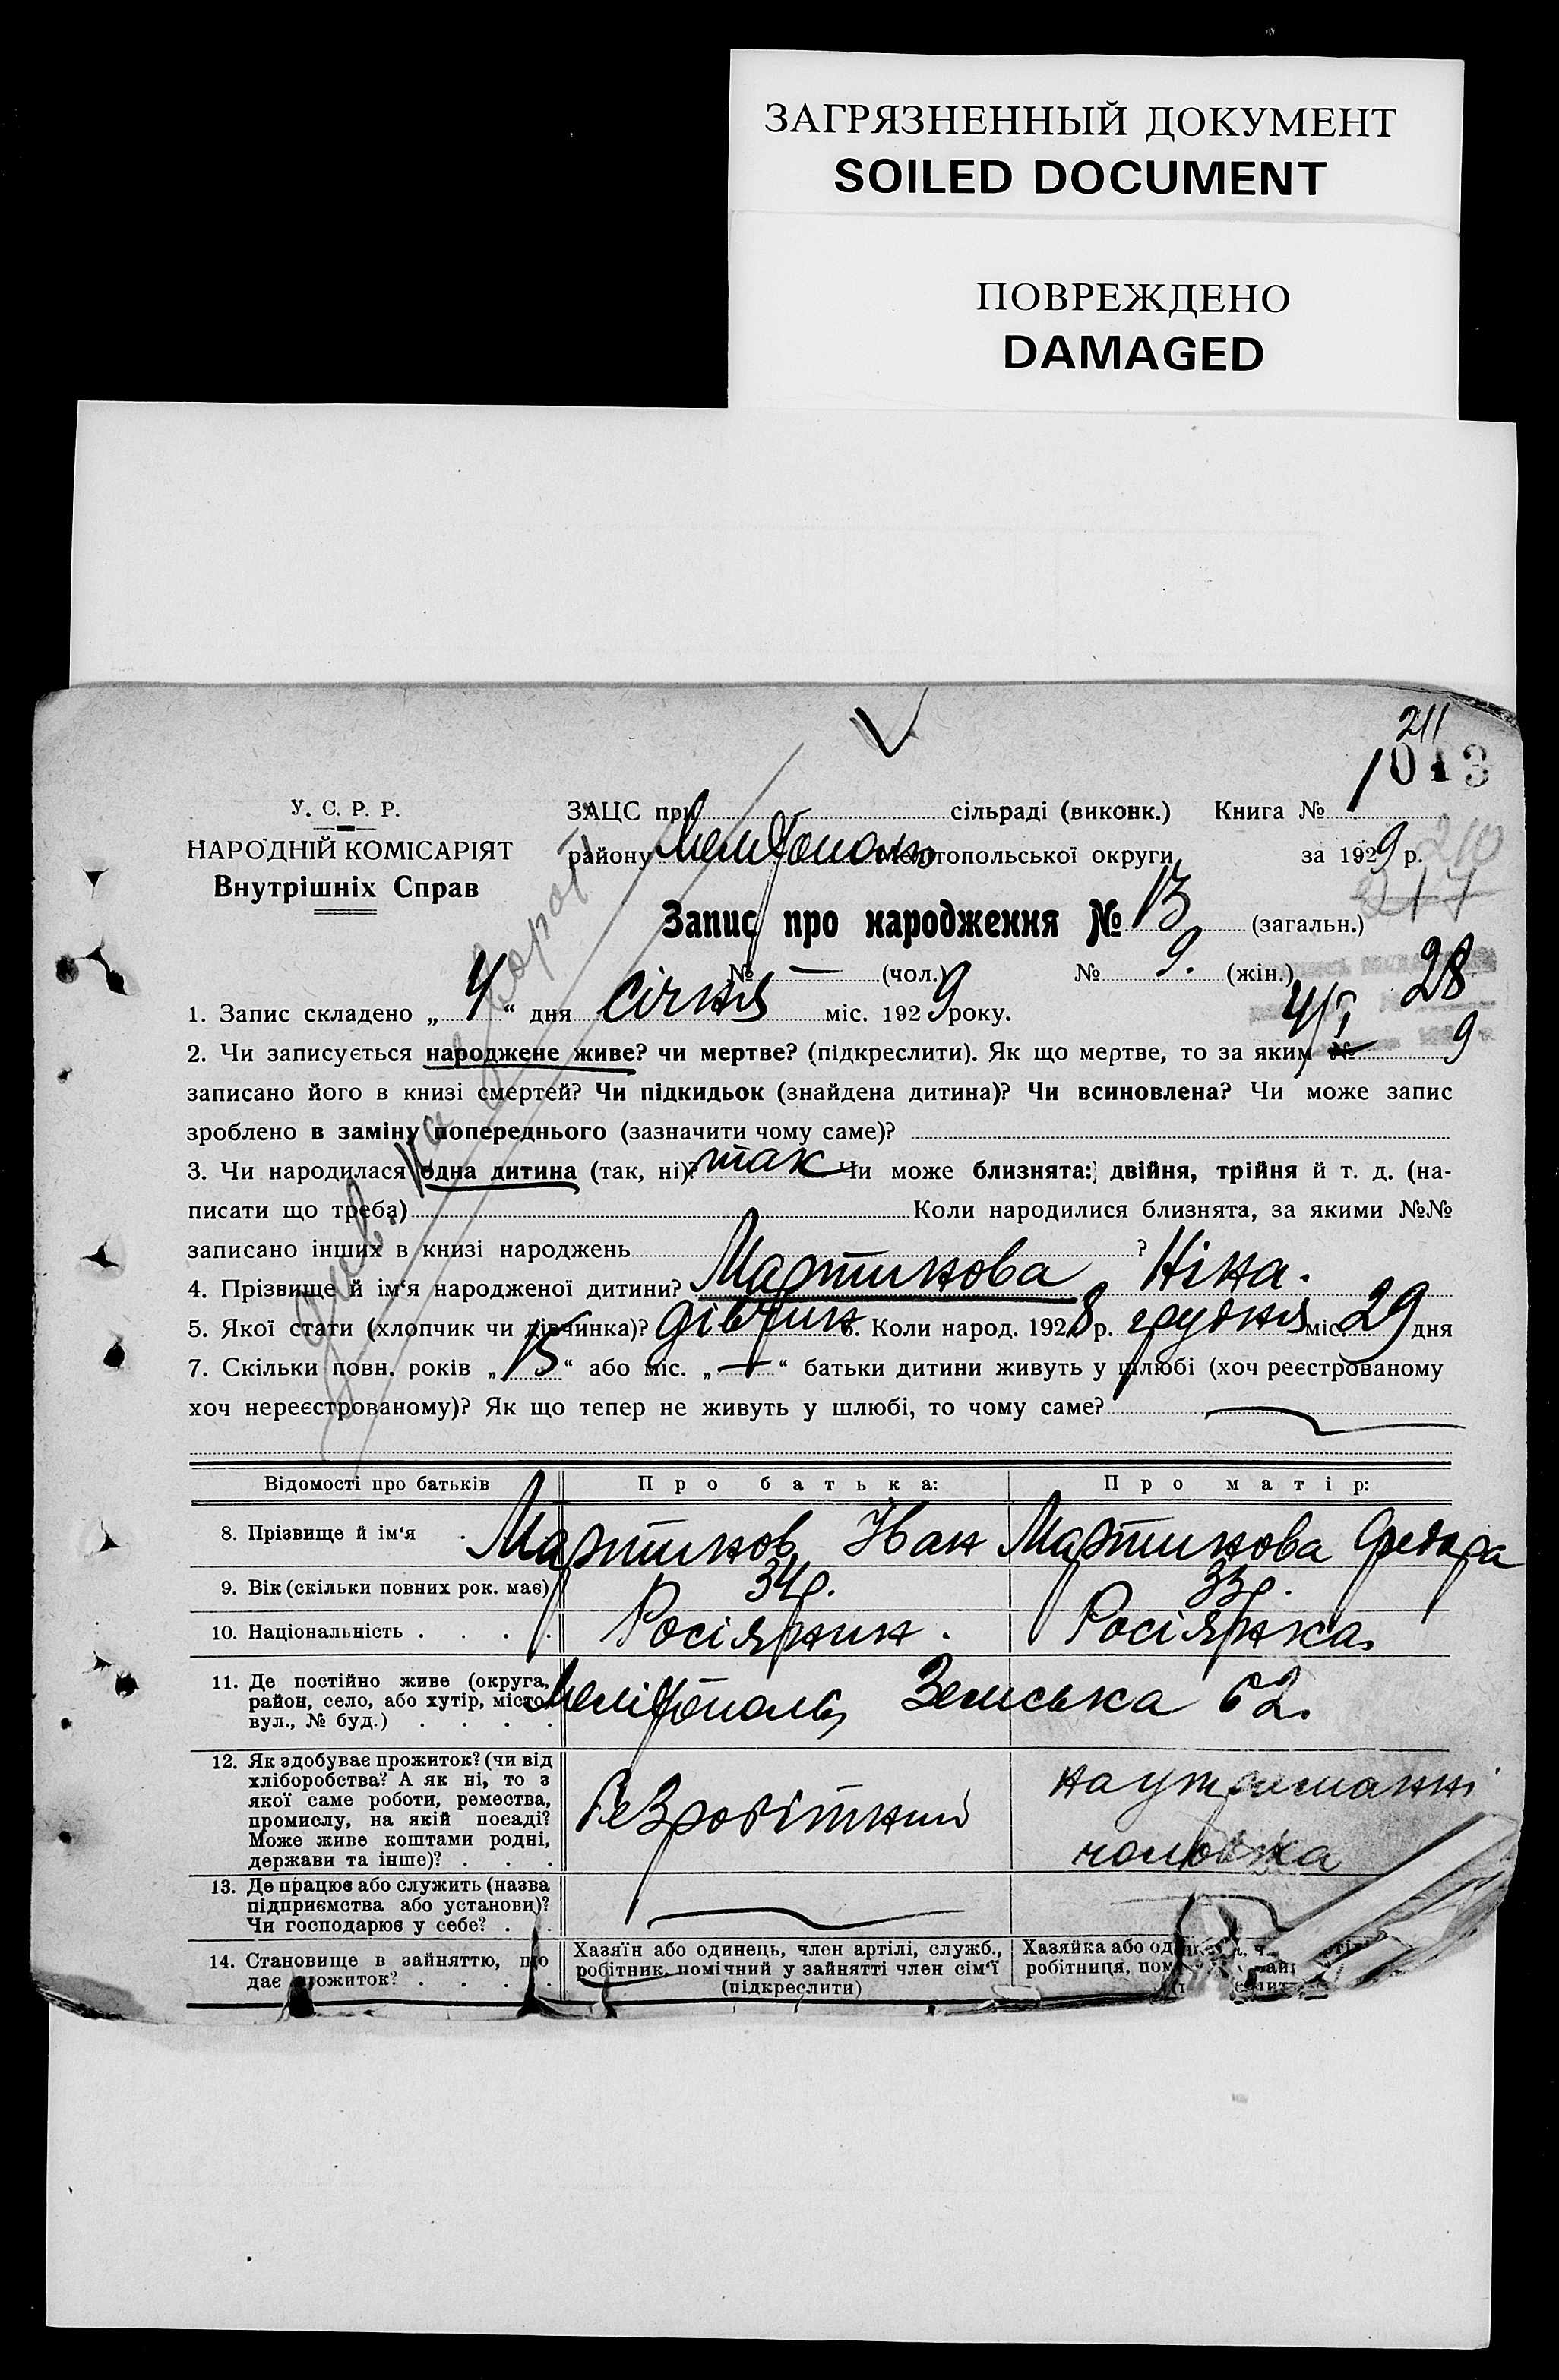 ЗАГРЯЗНЕННЫЙ ДОКУМЕНТ
SOILED DOCUMENT
ПОВРЕЖДЕНО
DAMAGED
211
1013
У. С. Р. Р.
НАРОДНІЙ КОМІСАРІЯТ
Внутрішніх Справ
ЗАЦС при сільраді (виконк.) Книга № 1
району Мелітополь Мелітопольської округи за 1929 р.
210
217
Запис про народження № 13 (загальн.)
№ — (чол.) № 9. (жін.)
28
1. Запис складено „ 4 “ дня січня міс. 1929 року.
4/I 9
2. Чи записується народжене живе? чи мертве? (підкреслити). Як що мертве, то за яким №
записано його в книзі смертей? Чи підкидьок (знайдена дитина)? Чи всиновлена? Чи може запис
зроблено в заміну попереднього (зазначити чому саме)?
3. Чи народилася одна дитина (так, ні)? так Чи може близнята: двійня, трійня й т. д. (на-
писати що треба) Коли народилися близнята, за якими №№
записано інших в книзі народжень ?
4. Прізвище й ім‘я народженої дитини? Мартинова Ніна.
5. Якої стати (хлопчик чи дівчинка)? дівчин 6. Коли народ. 1928 р. грудня міс. 29 дня
7. Скільки повн. років „ 15 “ або міс. „ — “ батьки дитини живуть у шлюбі (хоч реєстрованому
хоч нереєстрованому)? Як що тепер не живуть у шлюбі, то чому саме?
див на звороті
Відомості про батьків Про батька: Про матір:
8. Прізвище й ім‘я Мартинов Іван Мартинова Федора
9. Вік (скільки повних рок. має) 34р. 33р.
10. Національність . . . . Росіянин. Росіянка.
11. Де постійно живе (округа,
район, село, або хутір, місто,
вул., № буд.) . . . . Мелітополь, Земська 62.
12. Як здобуває прожиток? (чи від
хліборобства? А як ні, то з
якої саме роботи, ремества,
промислу, на якій посаді?
Може живе коштами родні,
держави та інше)? . . .
Безробітний
на утриманні
чоловіка
13. Де працює або служить (назва
підприємства або установи)?
Чи господарює у себе? . .
14. Становище в зайняттю, що
дає прожиток? . . . .
Хазяїн або одинець, член артілі, служб.,
робітник, помічний у зайнятті член сім‘ї
(підкреслити)
Хазяйка або
робітниця,